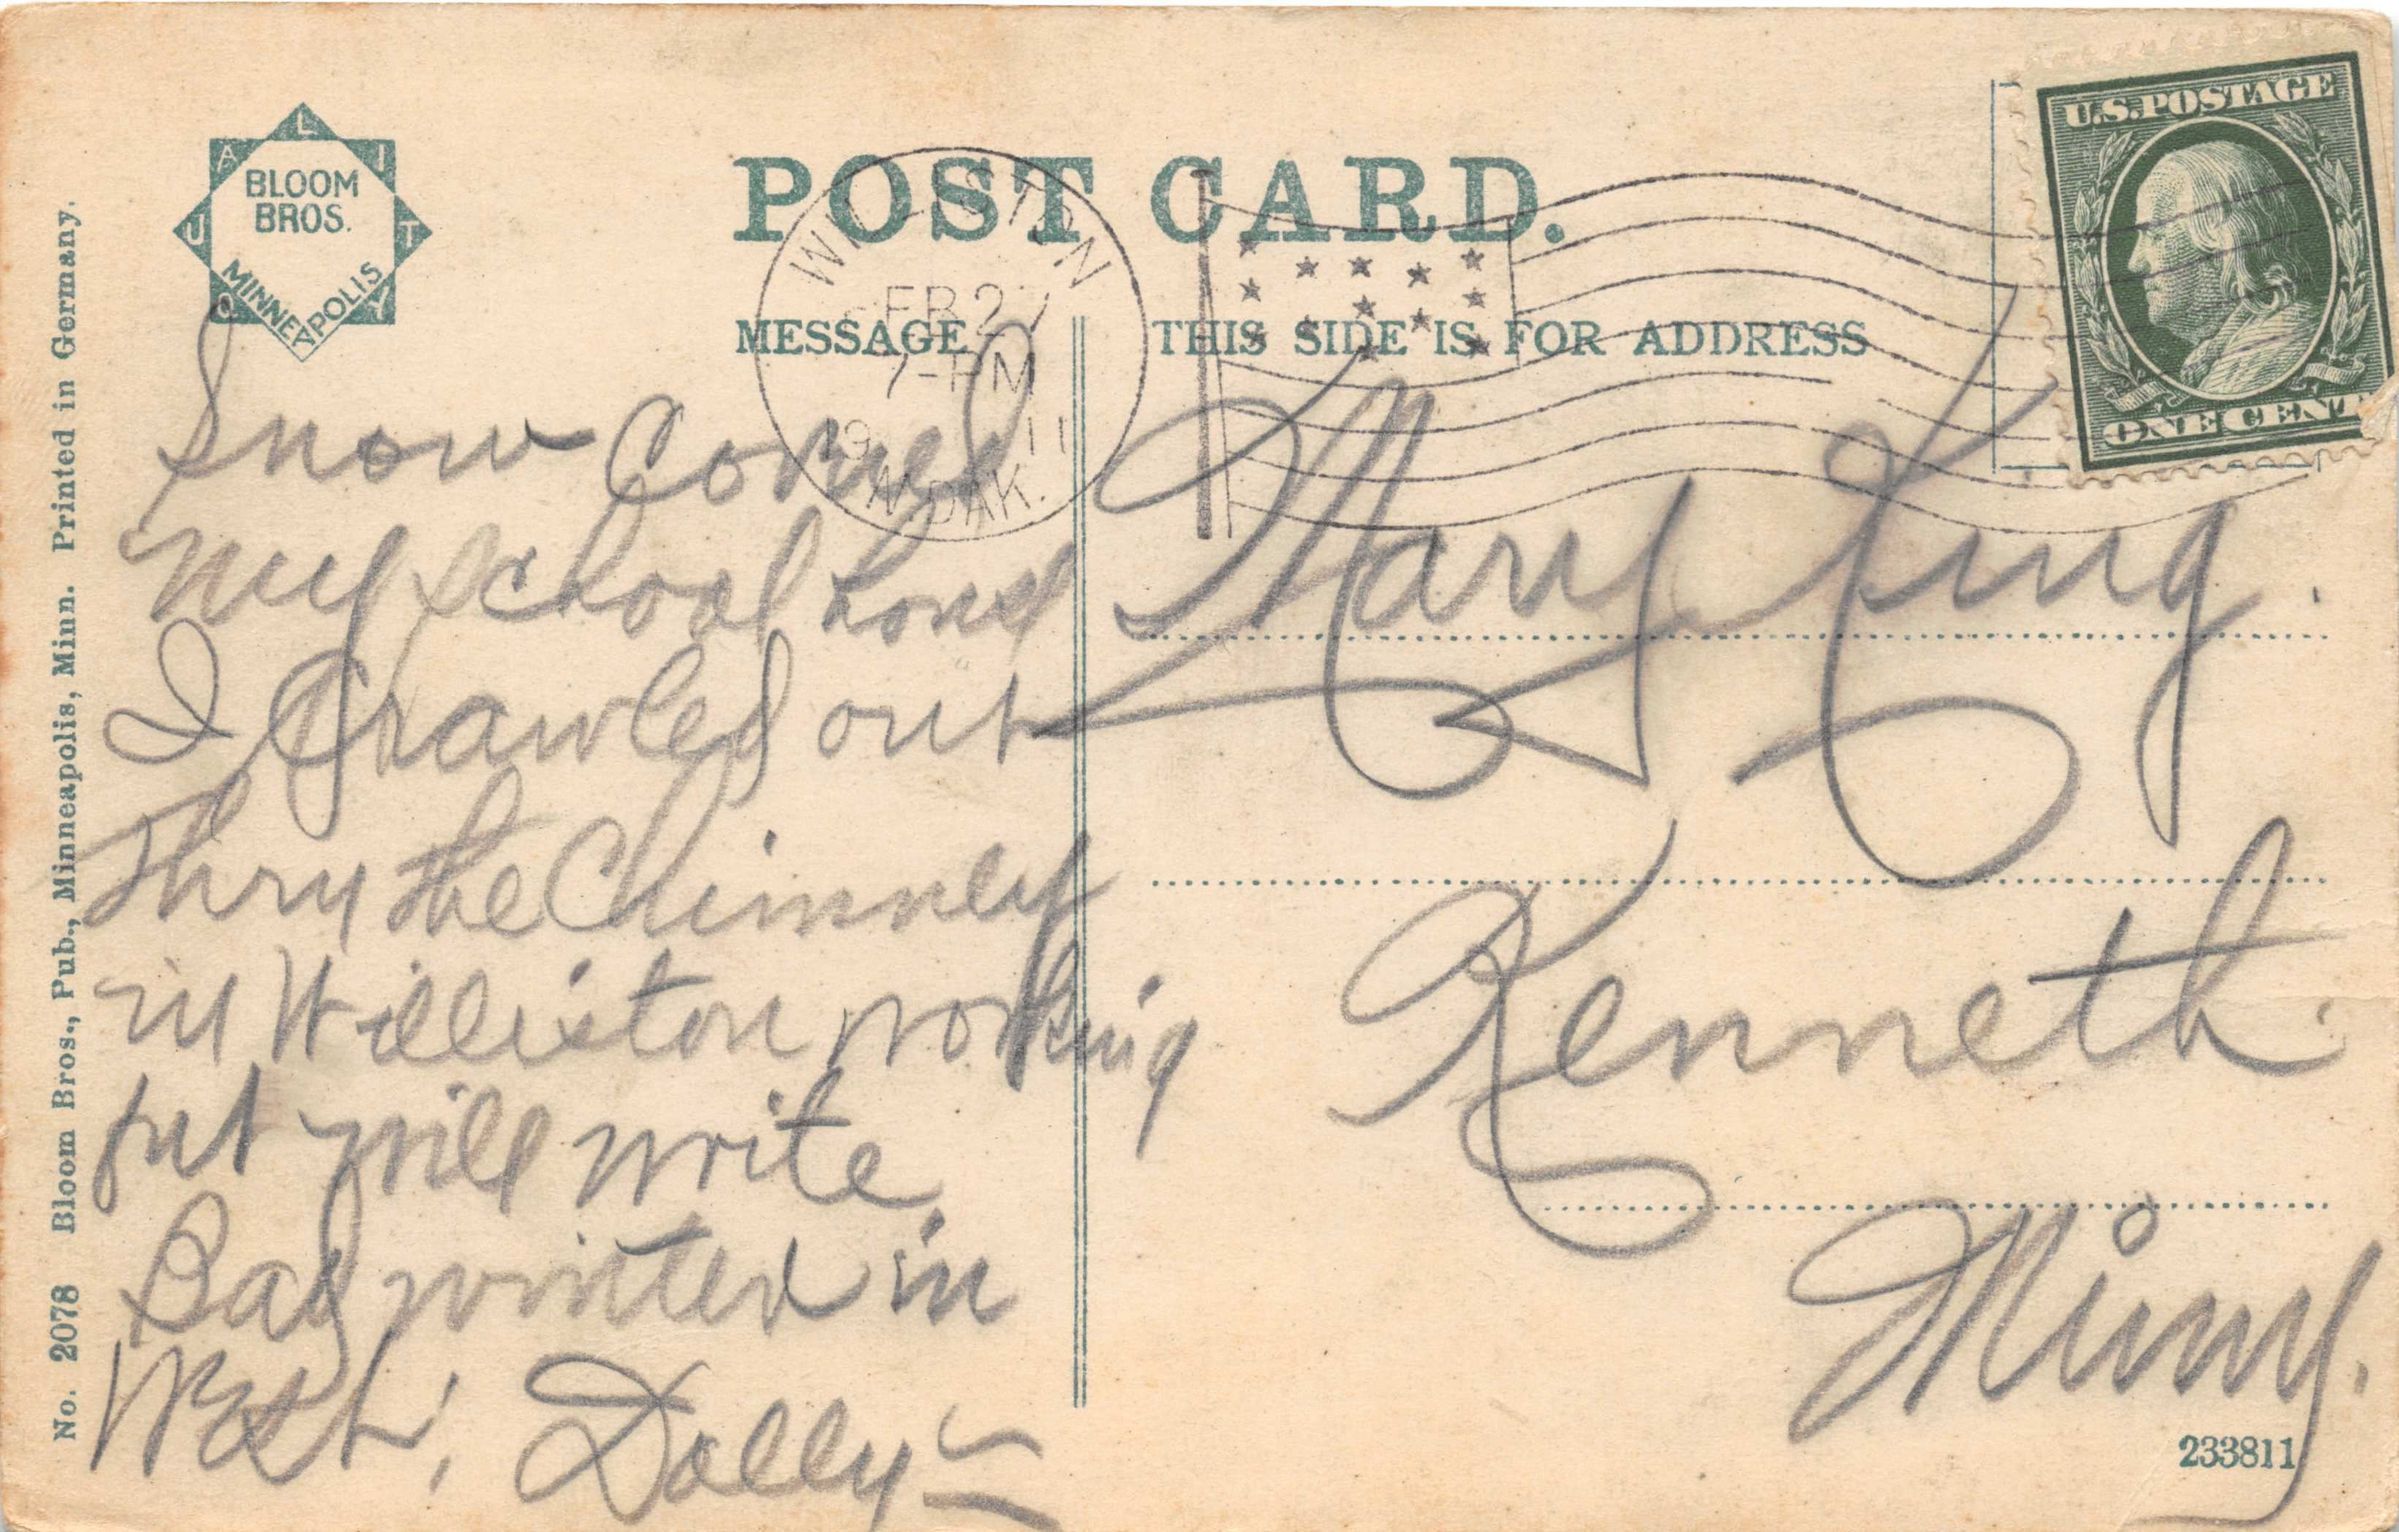 QUALITY
BLOOM
BROS.
MINNEAPOLIS
POST CARD.
WILLISTON
FEB 27
7-PM
1911
N.DAK.
U.S.POSTAGE
ONE CENT
MESSAGE
THIS SIDE IS FOR ADDRESS
Snow Coverd
my school house
I Crawled out
thru the Chimney
in Williston working
but will write
Bad winter in
West, Dolly
Mary King.
Kenneth.
Minn.
233811
No. 2078 Bloom Bros., Pub., Minneapolis, Minn. Printed in Germany.